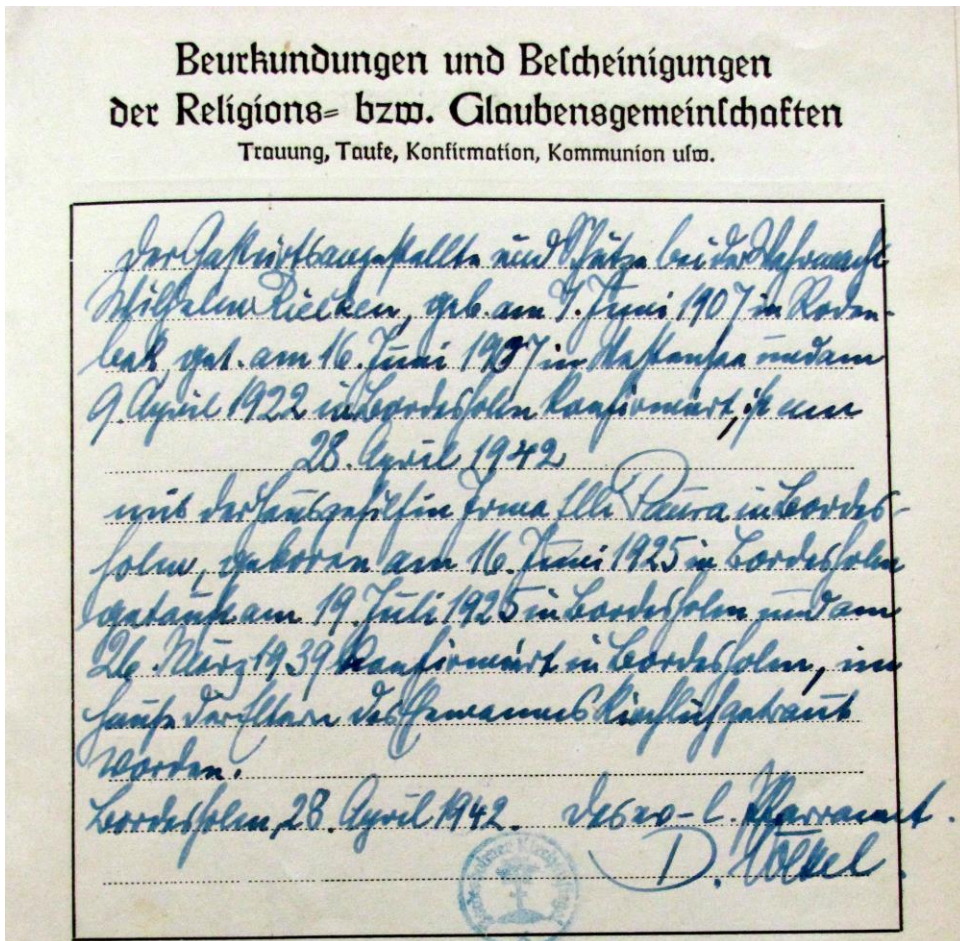 Beurkundungen und Bescheinigungen
der Religions- bzw. Glaubensgemeinschaften
Trauung, Taufe, Konfirmation, Kommunion usw.
Der Gastwirtsangestellte und Schütze bei der Wehrmacht
Wilhelm Riecken, geb. am 7. Juni 1907 in Roden-
bek, get. am 16. Juni 1907 in Westensee und am
9. April 1922 in Bordesholm konfirmiert, ist am
28. April 1942
mit der Hausgehilfin Irma Elli Paura in Bordes-
holm, geboren am 16. Juni 1925 in Bordesholm
getauft am 19. Juli 1925 in Bordesholm und am
26. März 1939 konfirmiert in Bordesholm, im
Hause der Eltern des Ehemannes kirchlich getraut
worden.
Bordesholm, 28. April 1942. Das ev-l. Pfarramt.
D. Völkel.